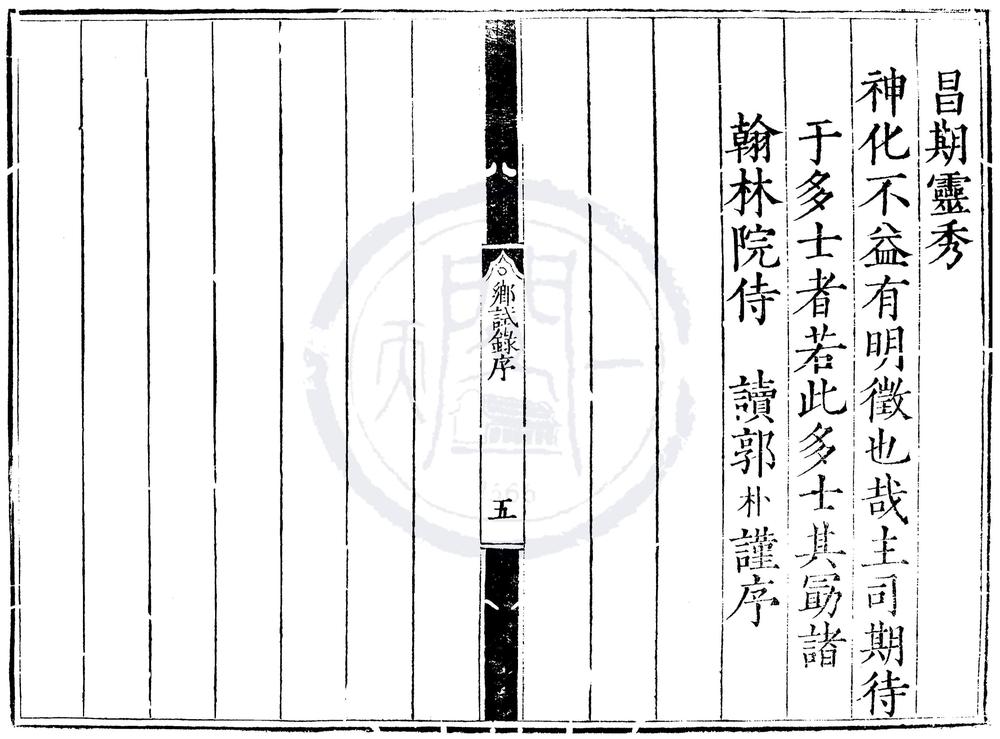 昌期靈秀
神化不益有明徵也哉主司期待
于多士者若此多士其勗諸
翰林院侍 讀郭朴謹序
鄉試錄序
五
天一閣
1566